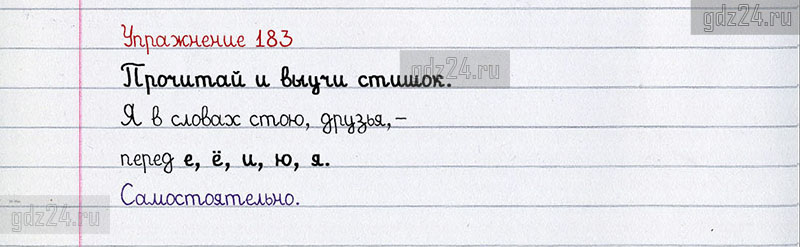 gdz24.ru
Упражнение 183
gdz24.ru
Прочитай и выучи стишок.
Я в словах стою, друзья,–
перед е, ё, и, ю, я.
Самостоятельно.
gdz24.ru